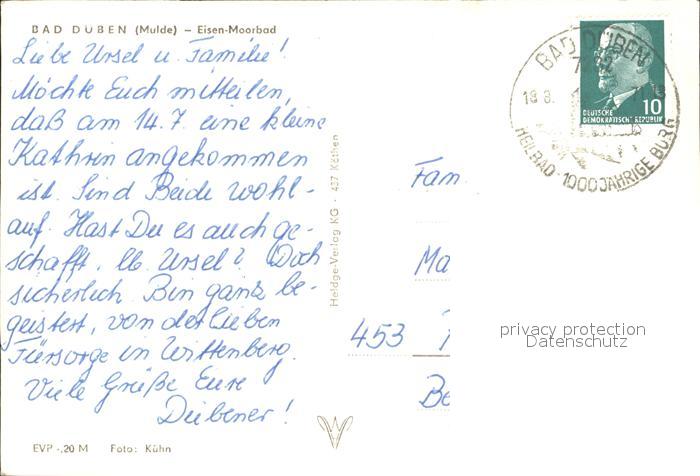 BAD DÜBEN (Mulde) – Eisen-Moorbad
Liebe Ursel u. Familie!
Möchte Euch mitteilen,
daß am 14.7. eine kleine
Kathrin angekommen
ist. Sind Beide wohl-
auf. Hast Du es auch ge-
schafft, lb. Ursel? Doch
sicherlich. Bin ganz be-
geistert, von der lieben
Fürsorge in Wittenberg.
Viele Grüße Eure
Dübener!
EVP -,20 M Foto: Kühn
Heldge-Verlag KG · 437 Köthen
BAD DÜBEN
7282
18.8.
HEILBAD · 1000JÄHRIGE BURG
10
DEUTSCHE
DEMOKRATISCHE REPUBLIK
Fam.
Ma
453
Be
privacy protection
Datenschutz